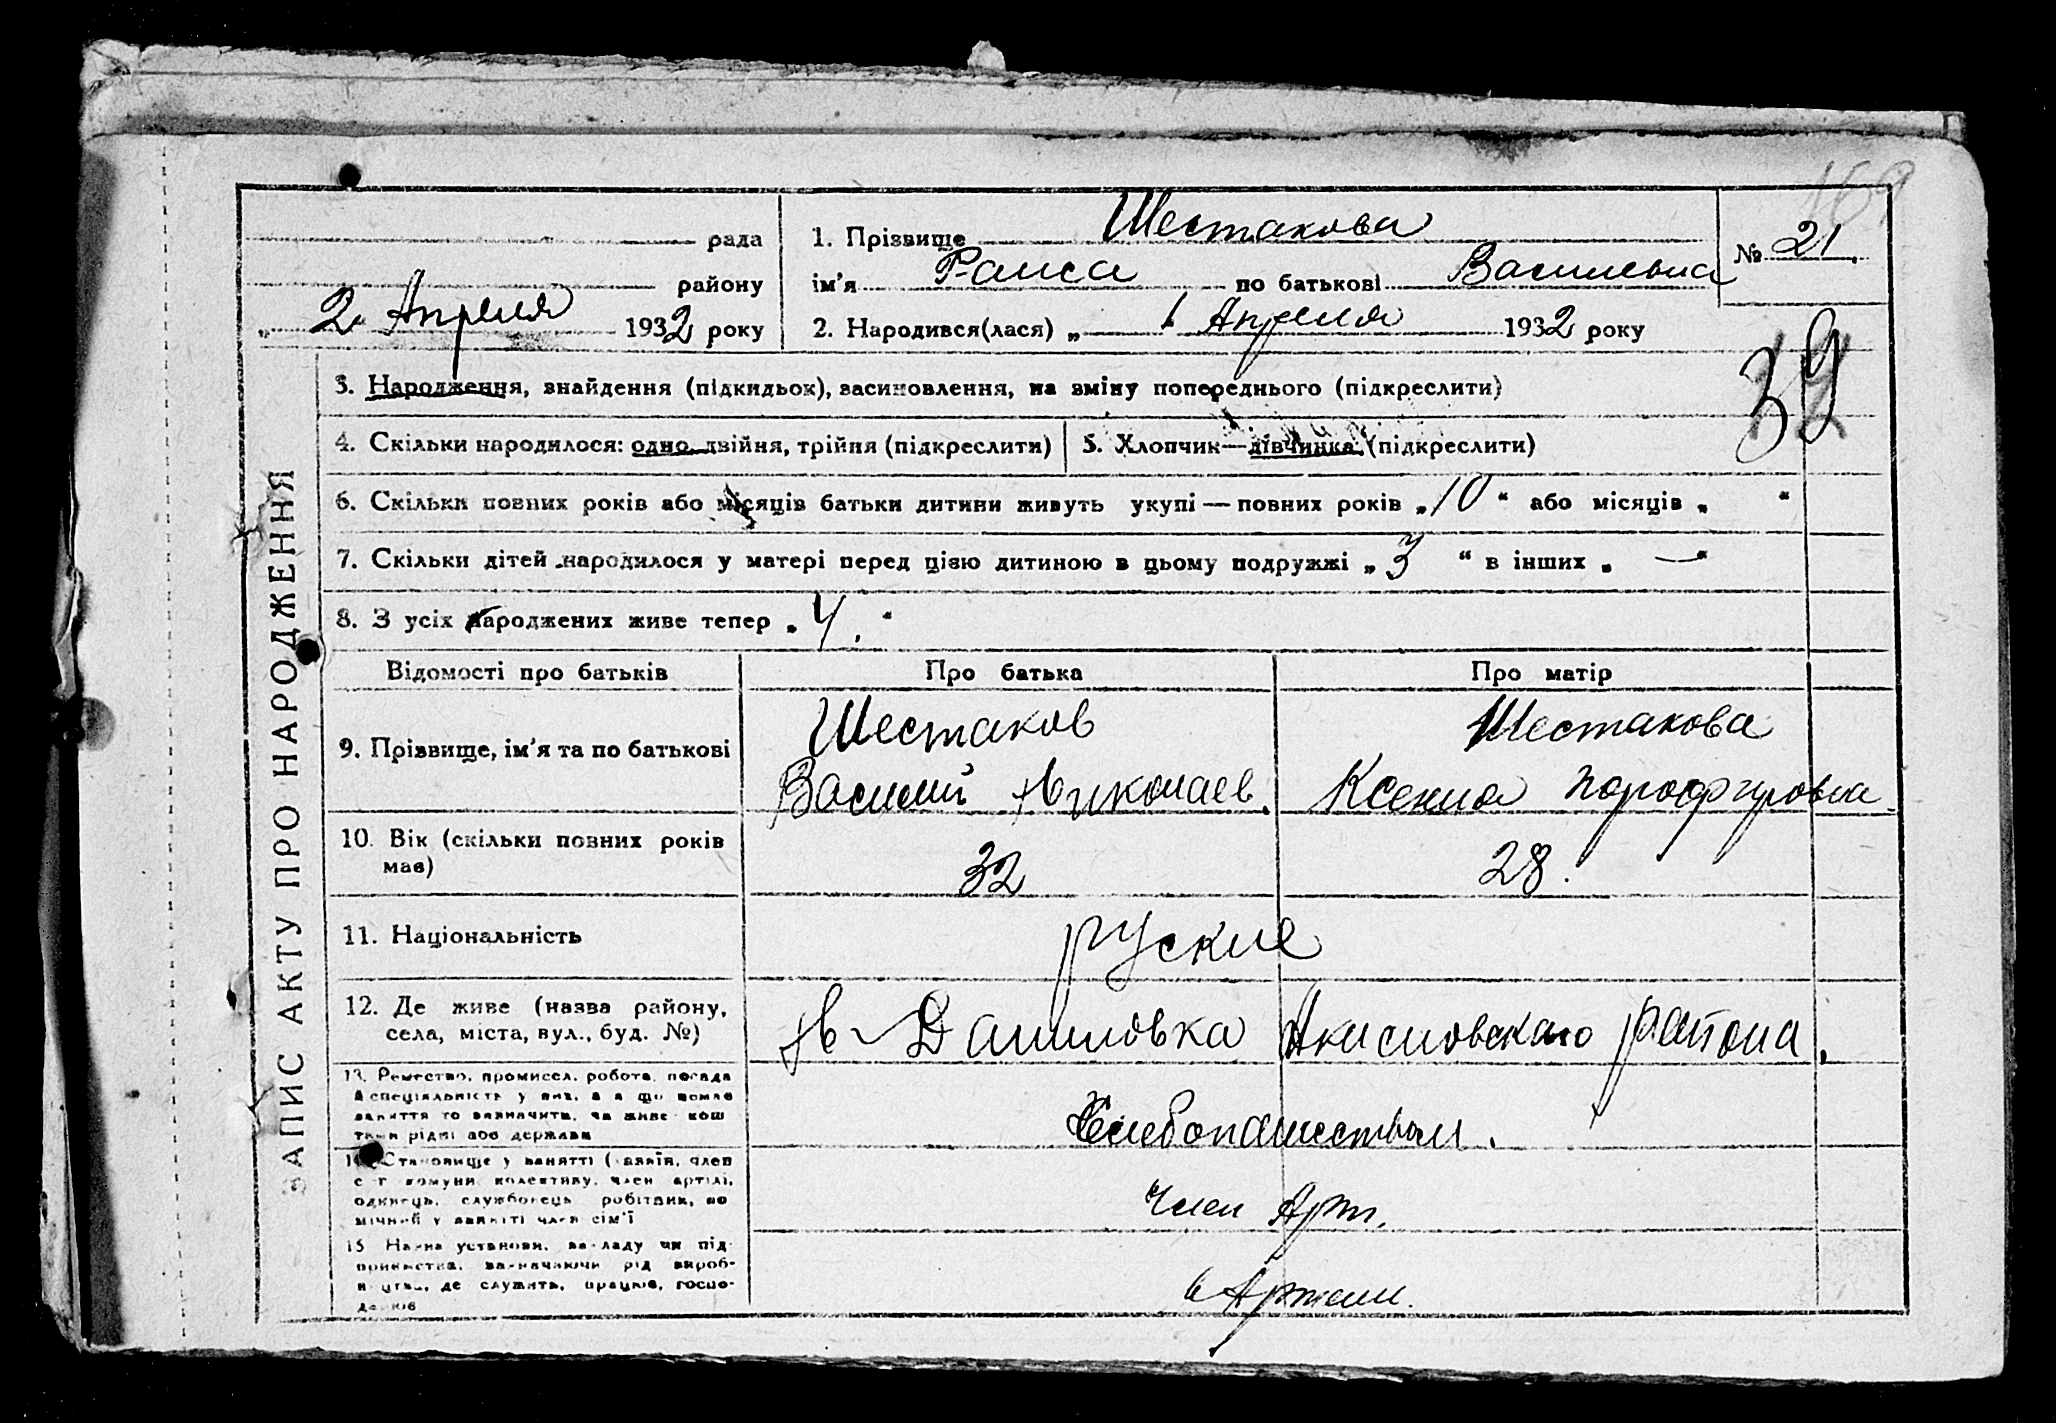 169
рада
1. Прізвище Шестакова
№ 21.
району
ім'я Раиса по батькові Васильевна
„ 2 Апреля 1932 року
2. Народився(лася) „ 1 Апреля 1932 року
39
3. Народження, знайдення (підкидьок), васиновлення, на зміну попереднього (підкреслити)
4. Скільки народилося: одно, двійня, трійня (підкреслити)
5. Хлопчик—дівчинка (підкреслити)
6. Скільки повних років або місяців батьки дитини живуть укупі — повних років „ 10 “ або місяців „ “
7. Скільки дітей народилося у матері перед цією дитиною в цьому подружжі „ 3 “ в інших „ — “
8. З усіх народжених живе тепер „ 4. “
ЗАПИС АКТУ ПРО НАРОДЖЕННЯ
Відомості про батьків
Про батька
Про матір
9. Прізвище, ім'я та по батькові
Шестаков
Василий Николаев.
Шестакова
Ксения
10. Вік (скільки повних років
має)
32
28.
11. Національність
руские
12. Де живе (назва району,
села, міста, вул., буд. №)
Н-Даниловка Акимовскаго района.
13. Ремество, промисел, робота, посада
й спеціяльність у них, а в що немає
заняття то зазначити, на чиї живе кош
ти рідні або держави
Хлебопашеством.
14. Становище у занятті (хазяїн, член
с г комуни колективу, член артілі,
одинець, службовець робітник, по
мічний у занятті член сім'ї
Член Арт.
15 Назва установи, закладу чи під
приємства, зазначаючи рід вироб-
ництва, де служить, працює, госпо-
дарює
в Артели.